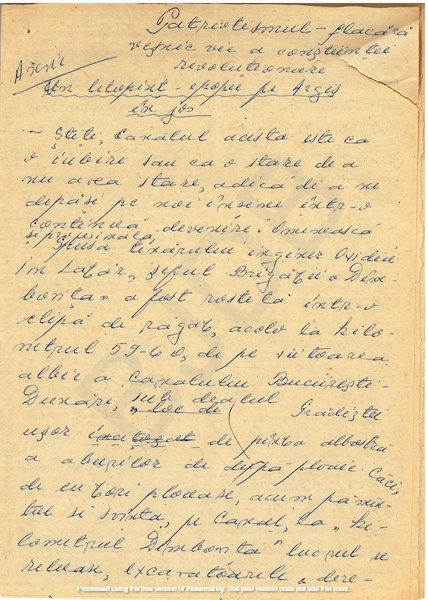 Patriotismul - flacără
veșnic vie a conștiinței
revoluționare
Un letopiseț - epopee pe Argeș
în jos
- Știți, Canalul acesta este ca
o iubire sau ca o stare de a
nu avea stare, adică de a ne
depăși pe noi înșine într-o
continuă devenire. Omenească
și profesională
spusa tînărului inginer Ovidiu
Lazăr, șeful Brigăzii "Dîm-
bovița" a fost rostită într-o
clipă de răgaz, acolo la kilo-
metrul 59-60, de pe viitoarea
albie a Canalului București-
Dunăre, sub dealul
Grădiștei
ușor de pînza albastră
a aburilor de după ploaie. Căci,
de cu zori plouase, acum pămîn-
tul se zvînta, pe Canal, la "ki-
lometrul Dîmbovița" lucrul se
reluase, excavatoarele, dere-
Processed using the free version of Watermarkly. The paid version does not add this mark.